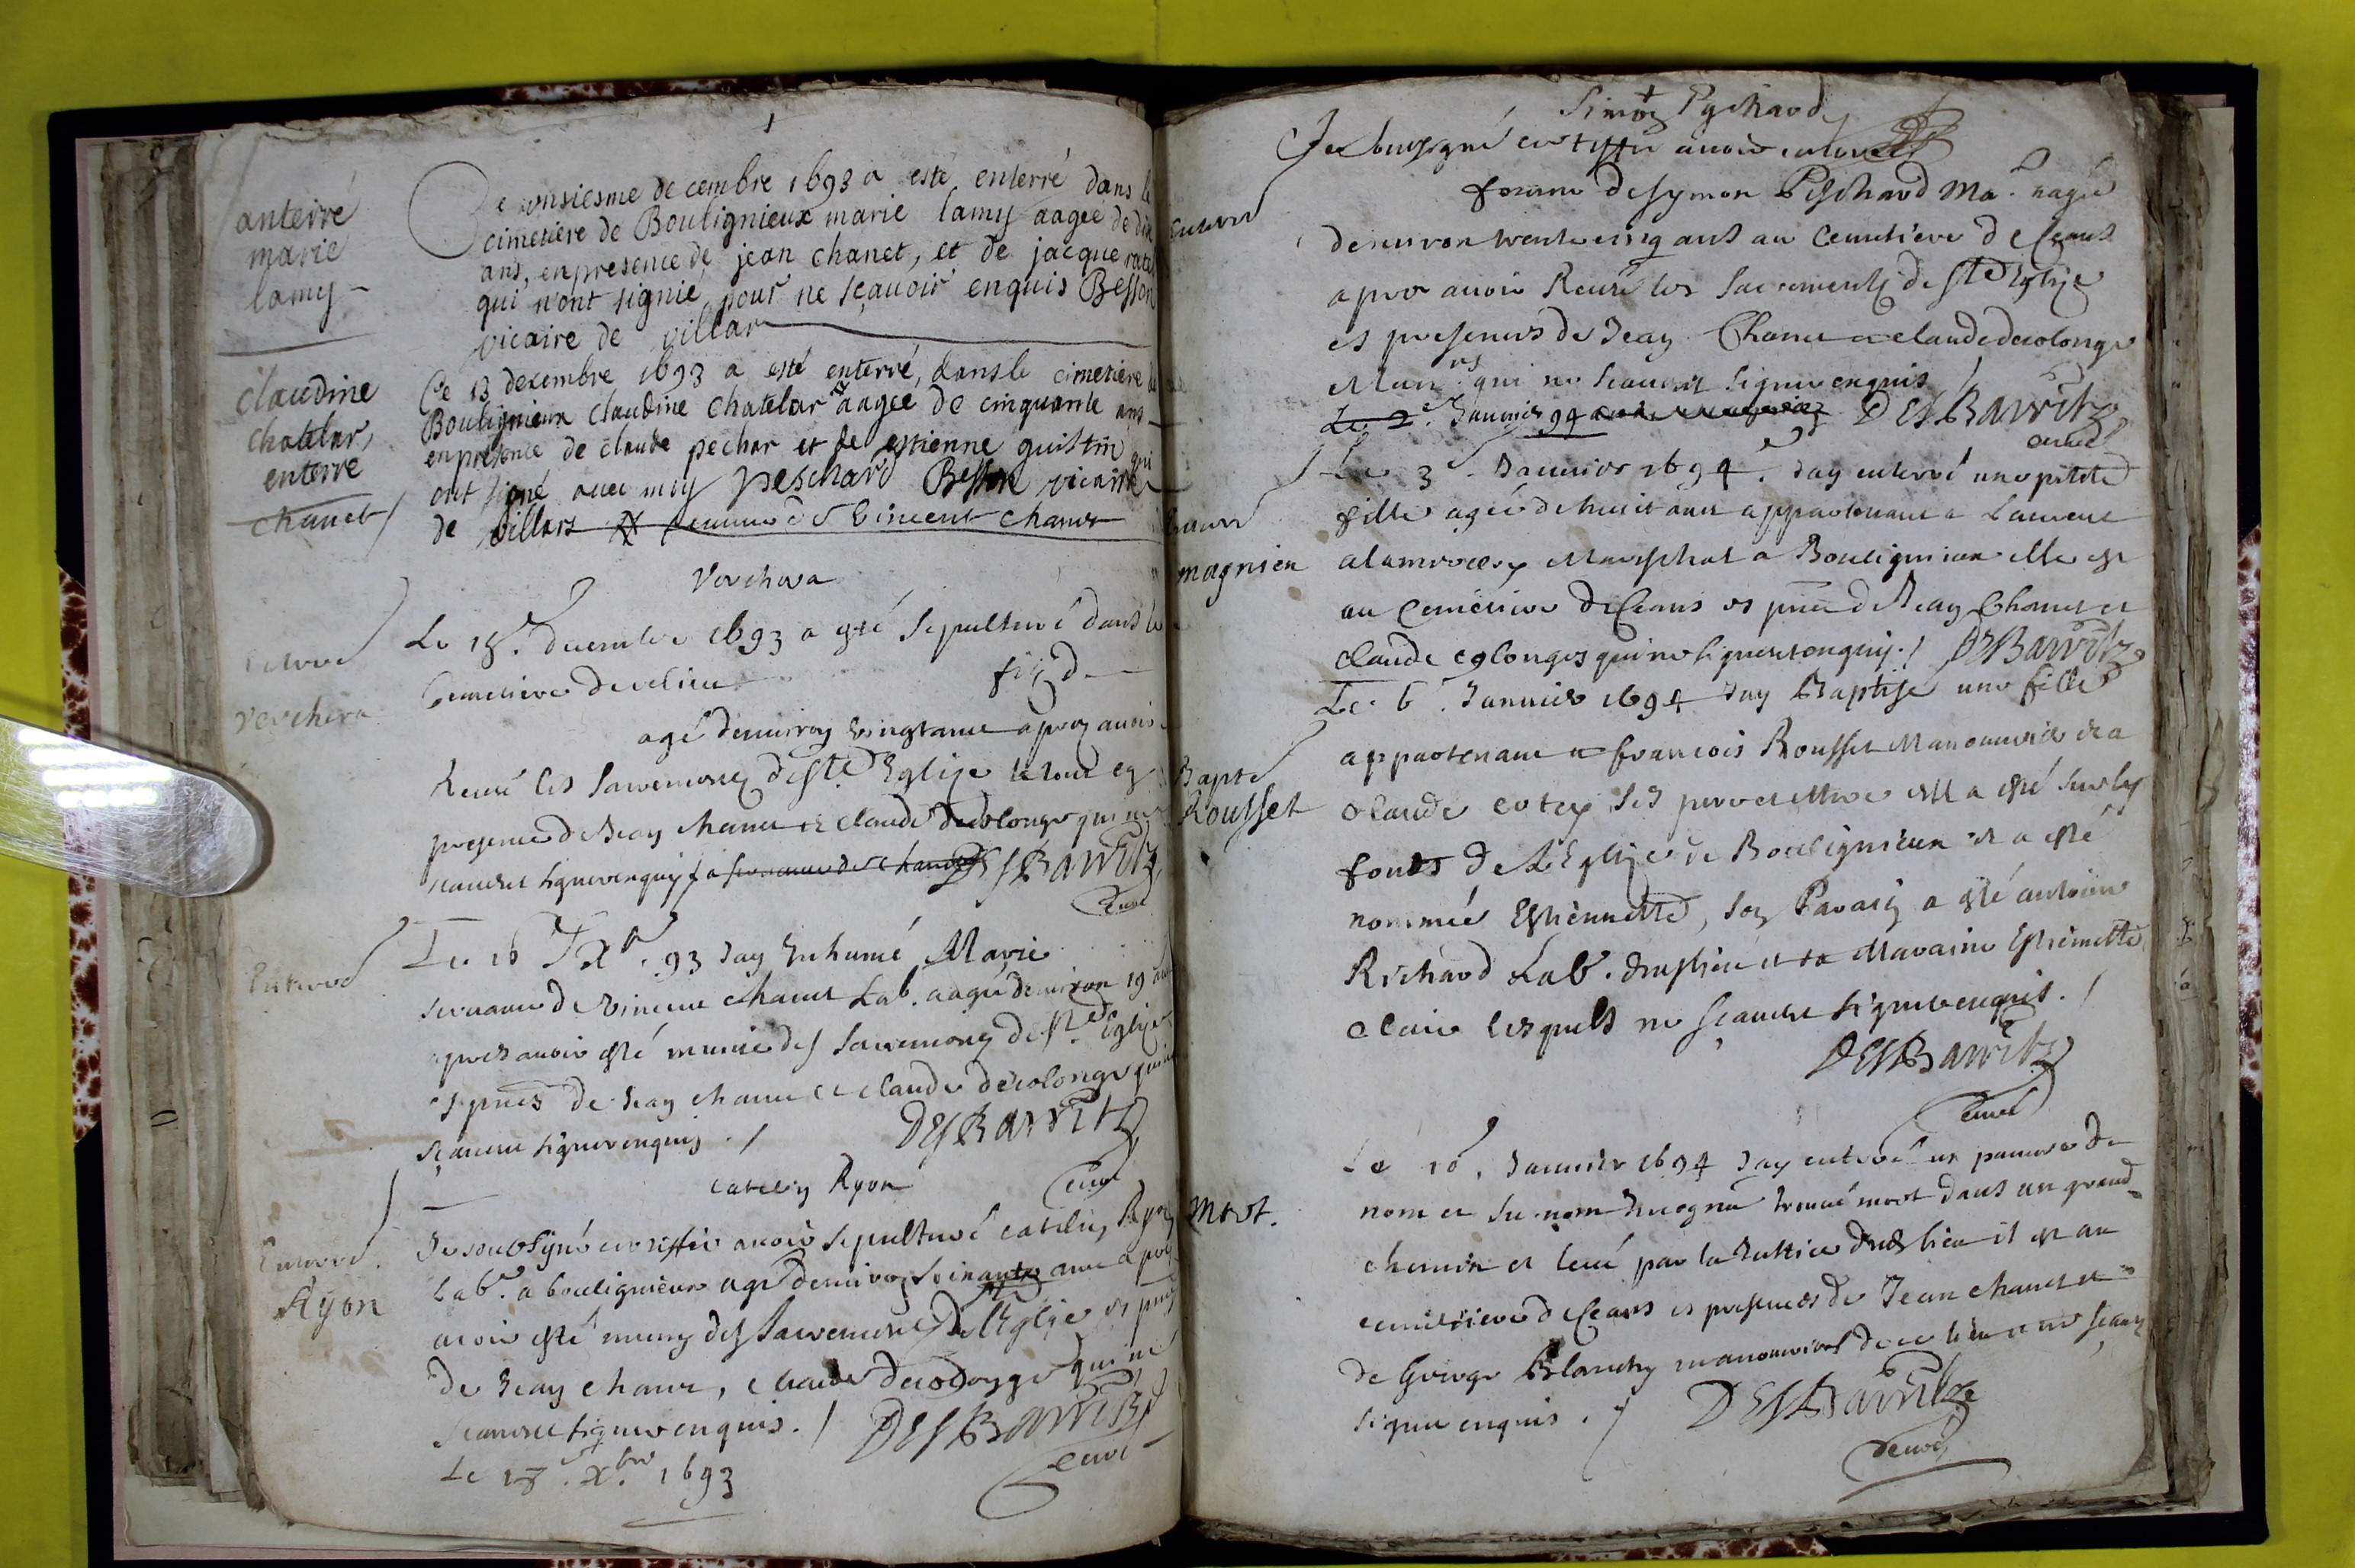 anterré
marie
lamy
Ce onsiesme decembre 1693 a esté enterré dans le
cimetiere de Boulignieux marie lamy aagée de dix
ans, en presence de jean chanet, et de jacque
qui n'ont signié pour ne sçavoir enquis Besson
vicaire de villar
claudine
chatelar
enterre
chanet
Ce 13 decembre 1693 a esté enterré, dans le cimetiere de
Boulignieux claudine chatelar aagée de cinquante ans
en presence de claude pechar et de estienne guistin qui
ont signé avec moy peschard Besson vicaire
de villars Vincent chanet
Verchera
Enterré
Verchera
Le 15e. decembre 1693 a esté sepulturé dans le
Cemetiere de ce lieu fils de
agé denviron vingt ans apres avoir
Receu les sacremens de ste Eglise le tout en
presence de Jean chanet et claude decolonge qui ne
scauent signer enquis DESBarritz
Curé
Enterré
Le 16 Xbr. 93 Jay Enhumé Marie
servante de Vincent chanet Lab. aagée denviron 19 ans
apres avoir esté munie des sacremens de ste Eglise
es pnces de Jean chanet et claude decolonge qui ne
sçavent signer enquis ./ DESBarritz
Curé
catelin Ryon
Enterré
Ryon
Je soubsigné certiffie avoir sepulturé catelin Ryon
Labr. a boulignieux agé denviron soixante ans apres
avoir esté muny des sacremens de l'Eglise es pnces
de Jean chanet, claude decolonge qui ne
scauent signer enquis ./ DESBarritz
Curé
Le 18e. Xbre 1693
Simon Pychard
Je soubsigné certiffie avoir enterré
Enterré
femme de symon Peschard Ma. aagée
denviron trente cinq ans au cemetiere de ceans
apres avoir Receu les sacrements de ste Eglise
es presences de Jean Chanet et claude decolonge
Man.rs qui ne scauent signer enquis /
Le 2e. Januier 94 DESBarritz
curé
Enterré
magnien
Le 3e. Januier 1694. Jay enterré une petite
fille agée de huict ans appartenant a Laurent
Mareschal a Boulignieux elle est
au Cemetiere de Ceans es pnce de Jean Chanet et
claude colonges qui ne signent enquis ./ DESBarritz
Bapte
Rousset
Le 6e. Januier 1694 Jay Baptisé une fille
appartenant a francois Rousset Manouvrier et a
claude ses pere et mere elle a esté sur les
fonts de l'Eglise de Boulignieux et a esté
nommée Estiennette, son Parain a esté antoine
Richard Lab. dudt lieu et sa Maraine Estiennette
claire lesquels ne sçavent signer enquis ./
DESBarritz
curé
Mort.
Le 10e. Januier 1694 Jay enterré un pauvre de
nom et surnom Incognu trouué mort dans un grand
chemin et leué par la Justice dudt lieu il est au
cemetiere de Ceans es presences de Jean chanet et
de George Blanchy manouvriers de ce lieu ne sçavent
signer enquis ./ DESBarritz
Curé